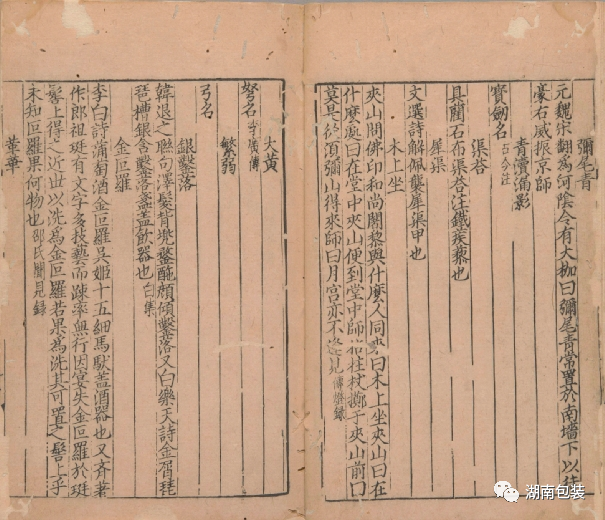 彌尾青
元魏宋翻為河陰令有大枷曰彌尾青常置於南墻下以待
豪右威振京師
青瀆漏影
寳劒名 古今注
渠荅
具藺石布渠荅注鐵疾藜也
犀渠
文選詩解佩襲犀渠甲也
木上坐
夾山問佛印和尚闍黎與什麽人同來曰木上坐夾山曰在
什麽處曰在堂中夾山便到堂中師拈柱杖擲于夾山前曰
莫是須彌山得來師曰月宮亦不逢 見傳燈録
大黄
弩名 李廣傳
繁弱
弓名
銀鑿落
韓退之聮句澤髪背兠鍪酡顔傾鑿落又白樂天詩金屑琵
琶槽銀含鑿落盞盖飲器也 白集
金叵羅
李白詩蒲萄酒金叵羅吳姬十五細馬馱盖酒器也又齊著
作郎祖珽有文字多技藝而踈率無行因宴失金叵羅於珽
髻上得之近世以洗為金叵羅若果為洗其可置之髻上乎
未知叵羅果何物也 邵氏聞見録
華
湖南包装